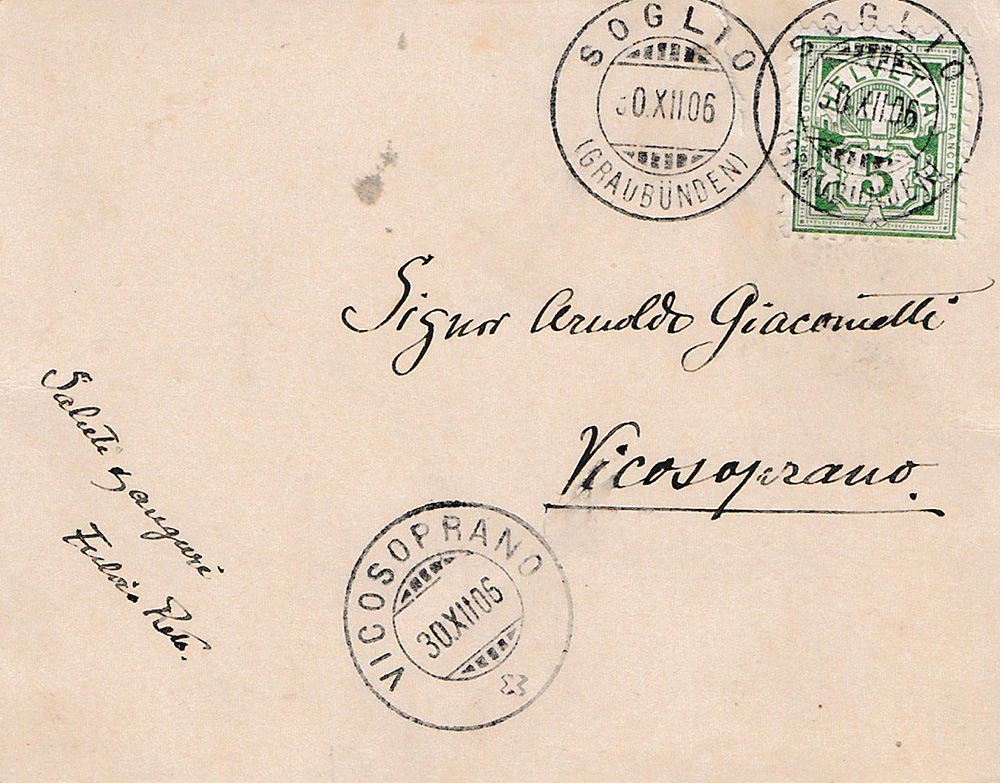 SOGLIO
30.XII.06
(GRAUBÜNDEN)
SOGLIO
30.XII.06
(GRAUBÜNDEN)
HELVETIA
FRANCO
5
Signor Arnoldo Giacometti
Vicosoprano.
Saluti & auguri
VICOSOPRANO
30.XII.06